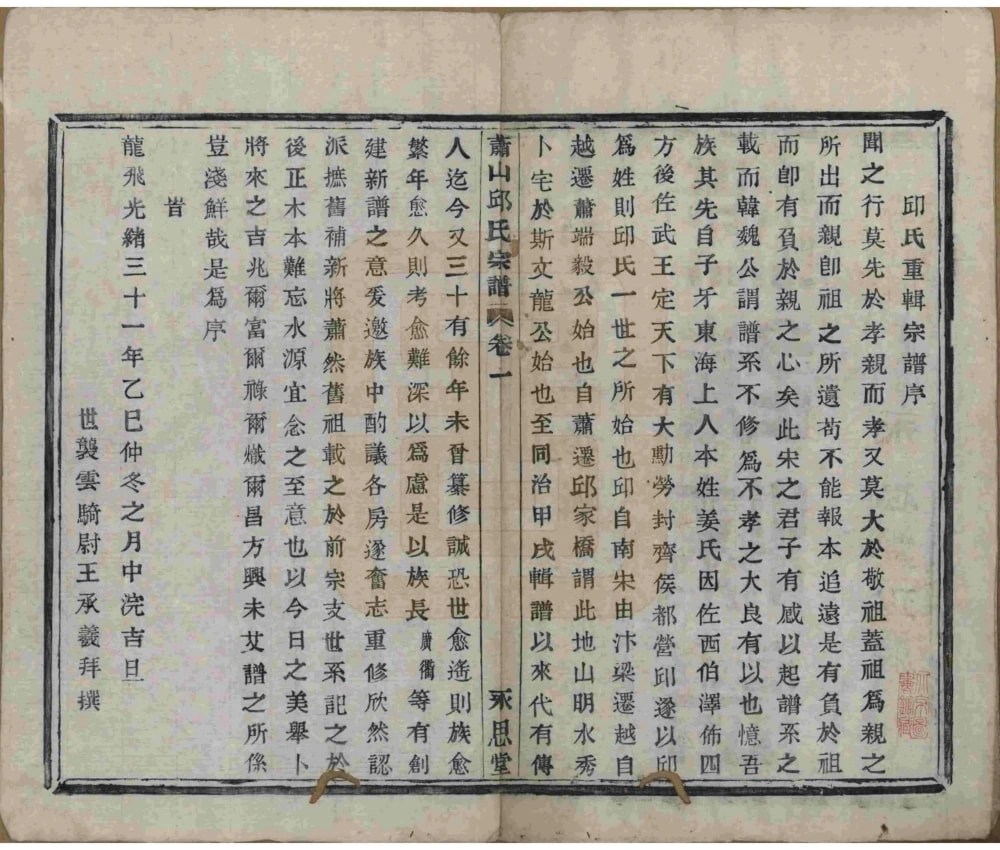 邱氏重輯宗譜序
聞之行莫先於孝親而孝又莫大於敬祖蓋祖爲親之
所出而親卽祖之所遺苟不能報本追遠是有負於祖
而卽有負於親之心矣此宋之君子有感以起譜系之
載而韓魏公謂譜系不修爲不孝之大良有以也憶吾
族其先自子牙東海上人本姓姜氏因佐西伯澤佈四
方後佐武王定天下有大勳勞封齊侯都營邱遂以邱
爲姓則邱氏一世之所始也邱自南宋由汴梁遷越自
越遷蕭端毅公始也自蕭遷邱家橋謂此地山明水秀
卜宅於斯文龍公始也至同治甲戌輯譜以來代有傳
蕭山邱氏宗譜 卷一 永思堂
人迄今又三十有餘年未曾纂修誠恐世愈遙則族愈
繁年愈久則考愈難深以爲慮是以族長廣衢等有創
建新譜之意爰邀族中酌議各房遂奮志重修欣然認
派摭舊補新將蕭然舊祖載之於前宗支世系記之於
後正木本難忘水源宜念之至意也以今日之美舉卜
將來之吉兆爾富爾祿爾熾爾昌方興未艾譜之所係
豈淺鮮哉是爲序
旹
龍飛光緒三十一年乙巳仲冬之月中浣吉旦
世襲雲騎尉王承羲拜撰